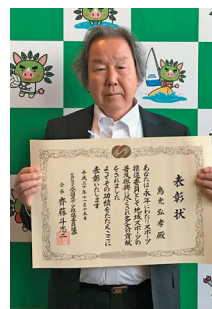 表彰状
鳥光弘孝 殿
あなたは永年にわたりスポーツ
推進委員として地域スポーツの
普及振興に尽くされ多大の貢献
をされました
よってその功績をたたえここに
表彰いたします
会長 齊藤斗志二